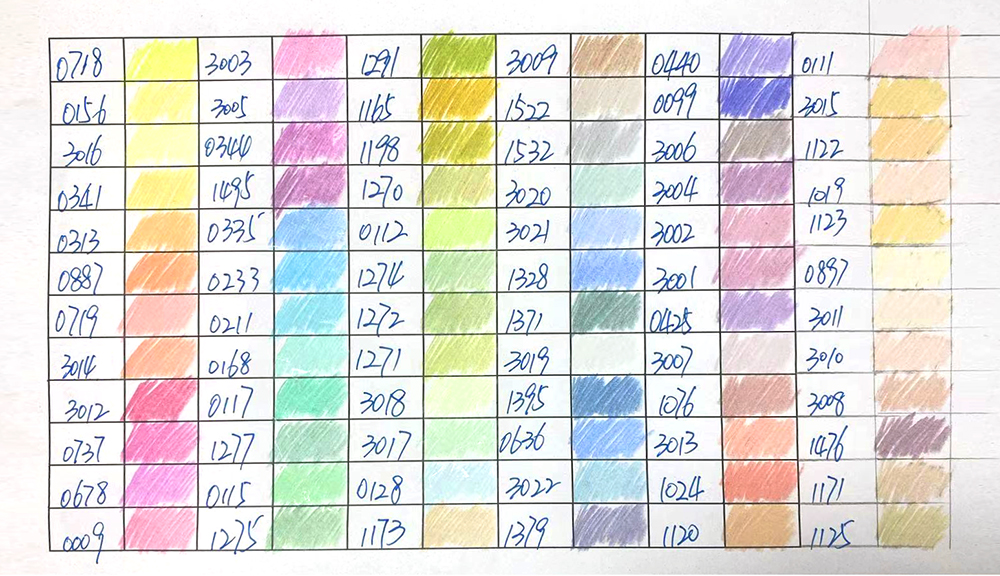 0718 3003 1291 3009 0440 0111
0156 3005 1165 1522 0099 3015
3016 0344 1198 1532 3006 1122
0341 1495 1270 3020 3004 1019
0313 0335 0112 3021 3002 1123
0887 0233 1274 1328 3001 0897
0719 0211 1272 1371 0425 3011
3014 0168 1271 3019 3007 3010
3012 0117 3018 1395 1076 3008
0737 1277 3017 0636 3013 1476
0678 0115 0128 3022 1024 1171
0009 1275 1173 1379 1120 1125